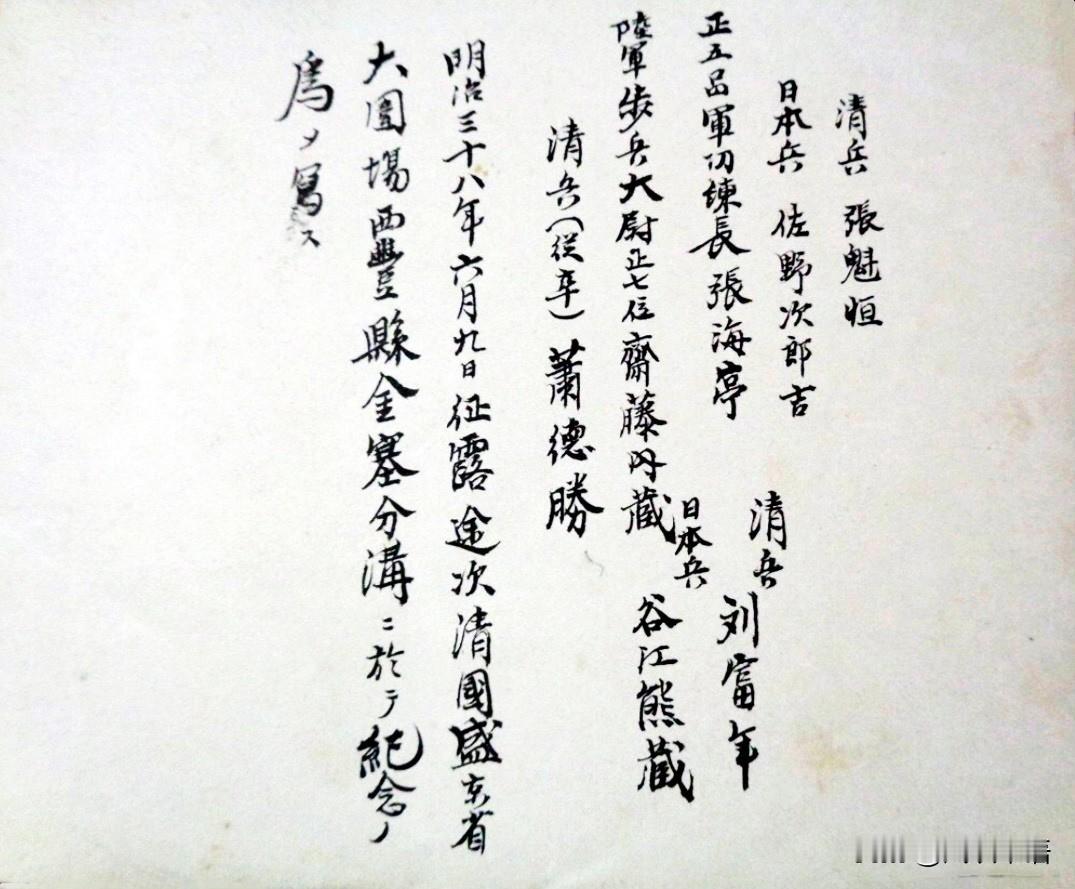 清兵 張魁恒
日本兵 佐野次郎吉
正五品軍功錬長張海亭
清兵 刘富年
陸軍歩兵大尉正七位齋藤丹蔵
日本兵 谷江熊蔵
清兵(従卒)蕭德勝
明治三十八年六月九日征露途次清國盛京省
大圍場西豐縣金塞分溝ニ於テ紀念ノ
爲メ寫ス